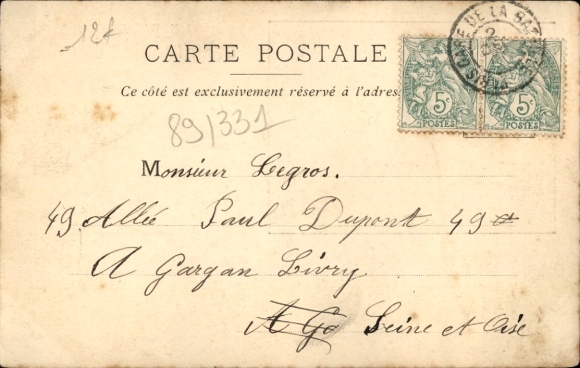 12f
CARTE POSTALE
Ce côté est exclusivement réservé à l'adres
89/331
PARIS GARE DE LA
5c 5c
POSTES POSTES
Monsieur Legros.
49 Allée Paul Dupont 49
A Gargan Livry
A Ga Seine et Oise